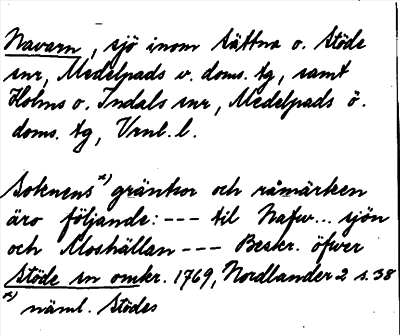 Navarn, sjö inom Sättna o. Stöde
snr, Medelpads v. doms. tg, samt
Holms o. Indals snr, Medelpads ö.
doms. tg, Vrnl. l.
Soknens x) gräntsor och råmärken
äro följande: --- til Nafw... sjön
och Moshällan --- Beskr. öfwer
Stöde sn omkr. 1769, Nordlander 2 s. 38
x) näml. Stödes